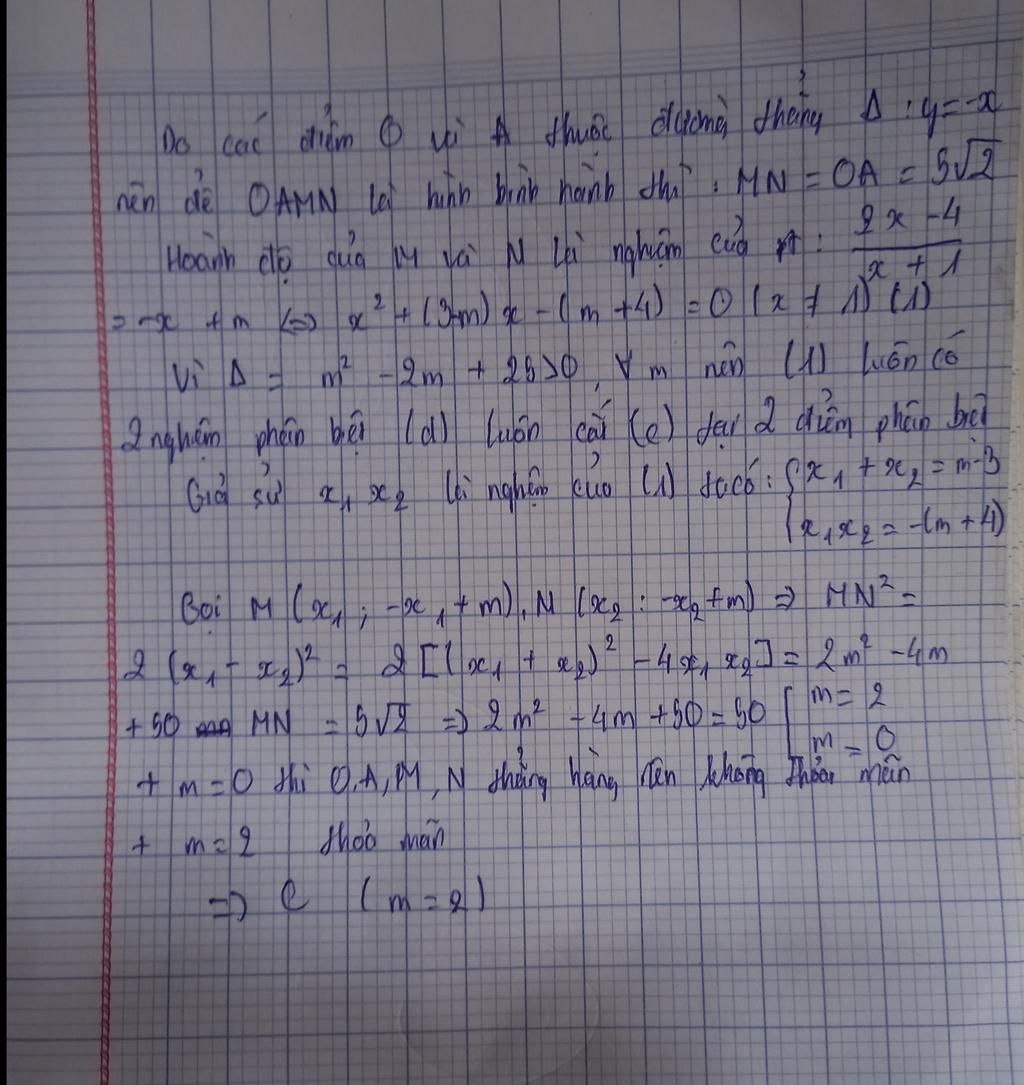 Do các điểm O và A thuộc đường thẳng Δ : y = -x
nên để OAMN là hình bình hành thì : MN = OA = 5√2
Hoành độ của M và N là nghiệm của pt : (2x - 4)/(x + 1)
= -x + m (=) x² + (3-m) x - (m + 4) = 0 (x ≠ 1) (1)
Vì Δ = m² - 2m + 25 > 0, ∀ m nên (1) luôn có
2 nghiệm phân biệt (d) luôn cắt (c) tại 2 điểm phân biệt
Giả sử x₁ x₂ là nghiệm của (1) ta có : { x₁ + x₂ = m - 3
x₁x₂ = -(m + 4)
Gọi M (x₁ ; -x₁ + m), N (x₂ : -x₂ + m) => MN² =
2 (x₁ - x₂)² = 2 [(x₁ + x₂)² - 4x₁ x₂] = 2m² - 4m
+ 50 MN = 5√2 => 2m² - 4m + 50 = 50 [ m = 2
m = 0
+ m = 0 thì O, A, M, N thẳng hàng nên không thoả mãn
+ m = 2 thoả mãn
=> C (m = 2)